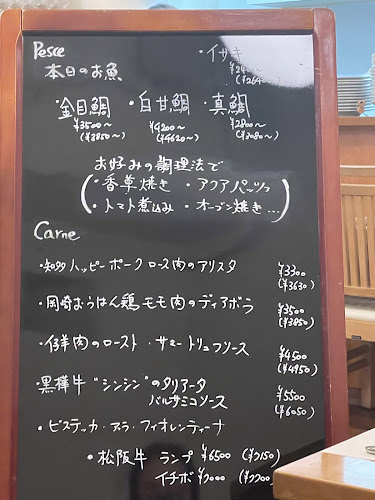 Pesce
本日のお魚
・イサキ
¥2400~
(¥2640~)
・金目鯛 ・白甘鯛 ・真鯛
¥3500~ ¥4200~ ¥2800~
(¥3850~) (¥4620~) (¥3080~)
お好みの調理法で
・香草焼き ・アクアパッツァ
・トマト煮込み ・オーブン焼き…
Carne
・知多ハッピーポーク ロース肉のアリスタ ¥3300
(¥3630)
・岡崎おうはん鶏 モモ肉のディアボラ ¥3500
(¥3850)
・仔羊肉のロースト・サマートリュフソース ¥4500
(¥4950)
・黒樺牛 "シンシン"のタリアータ ¥5500
バルサミコソース (¥6050)
・ビステッカ・アラ・フィオレンティーナ
・松阪牛 ランプ ¥6500 (¥7150)
イチボ ¥7000 (¥7700)